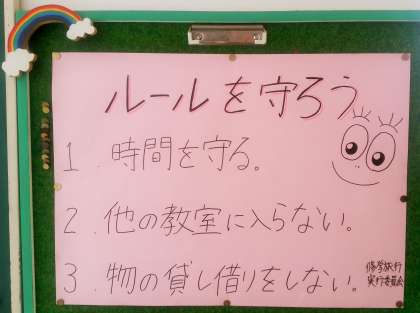 ルールを守ろう
1. 時間を守る。
2. 他の教室に入らない。
3. 物の貸し借りをしない。
修学旅行
実行委員会